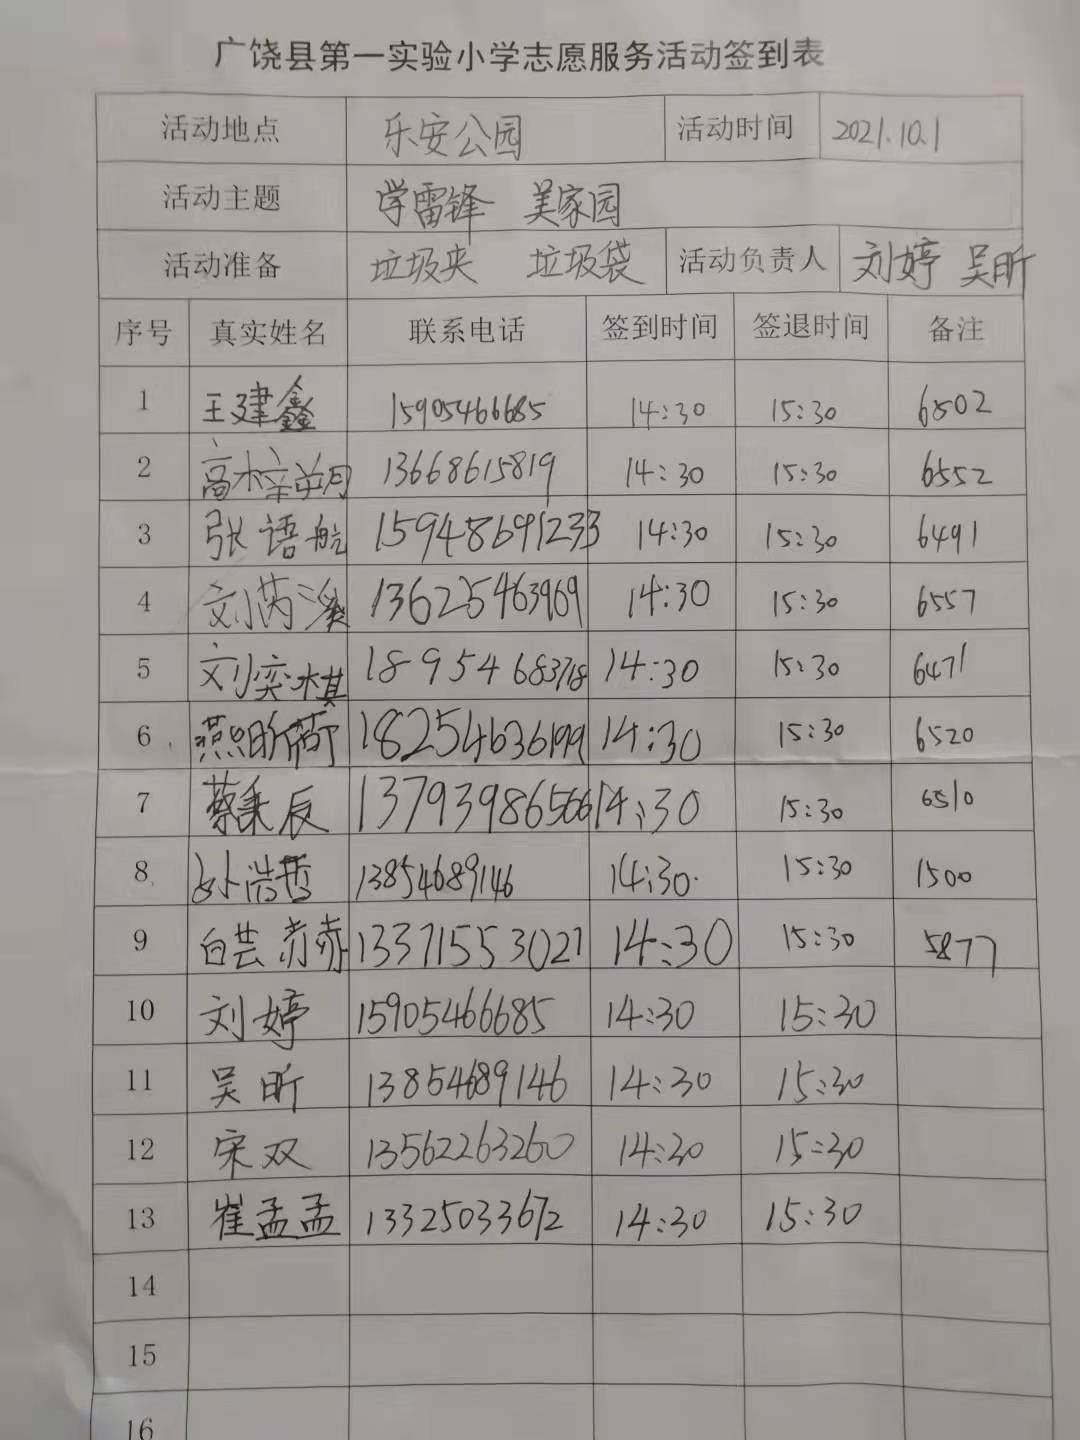 广饶县第一实验小学志愿服务活动签到表
活动地点 乐安公园 活动时间 2021.10.1
活动主题 学雷锋 美家园
活动准备 垃圾夹 垃圾袋 活动负责人 刘婷 吴昕
序号 真实姓名 联系电话 签到时间 签退时间 备注
1 王建鑫 15905466685 14:30 15:30 6502
2 高梓玥 13668615819 14:30 15:30 6552
3 张语航 15948691233 14:30 15:30 6491
4 刘芮溪 13625463969 14:30 15:30 6557
5 刘奕棋 18954683718 14:30 15:30 6471
6 燕昕荷 18254636199 14:30 15:30 6520
7 蔡秉辰 13793986566 14:30 15:30 6510
8 孙浩哲 13854689146 14:30 15:30 1500
9 白芸赫 13371553021 14:30 15:30 5877
10 刘婷 15905466685 14:30 15:30
11 吴昕 13854689146 14:30 15:30
12 宋双 13562263260 14:30 15:30
13 崔孟孟 13325033672 14:30 15:30
14
15
16